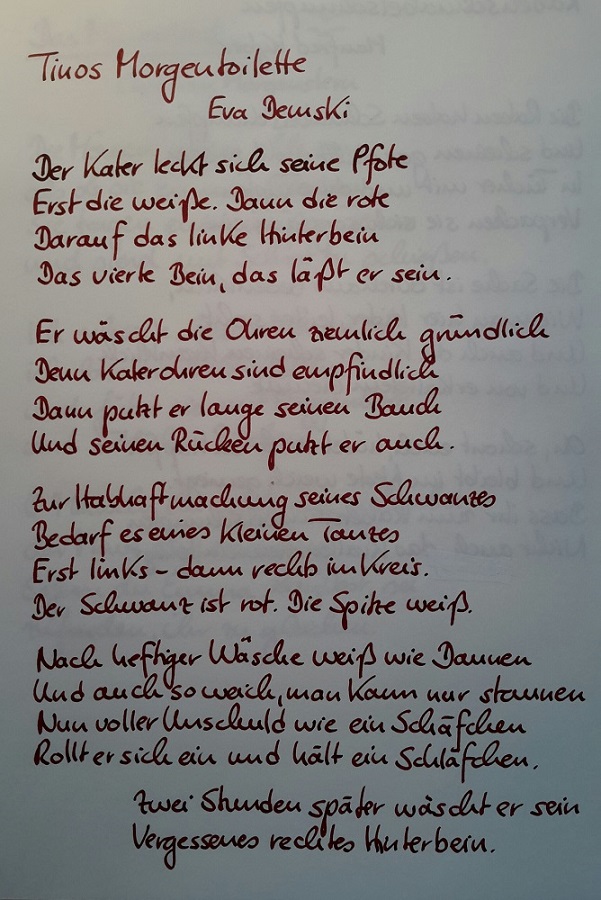 Tinos Morgentoilette
Eva Demski
Der Kater leckt sich seine Pfote
Erst die weiße. Dann die rote
Darauf das linke Hinterbein
Das vierte Bein, das läßt er sein.
Er wäscht die Ohren ziemlich gründlich
Denn Katerohren sind empfindlich
Dann putzt er lange seinen Bauch
Und seinen Rücken putzt er auch.
Zur Habhaftmachung seines Schwanzes
Bedarf es eines kleinen Tanzes
Erst links – dann rechts im Kreis.
Der Schwanz ist rot. Die Spitze weiß.
Nach heftiger Wäsche weiß wie Daunen
Und auch so weich, man kann nur staunen
Nun voller Unschuld wie ein Schäfchen
Rollt er sich ein und hält ein Schläfchen.
Zwei Stunden später wäscht er sein
Vergessenes rechtes Hinterbein.